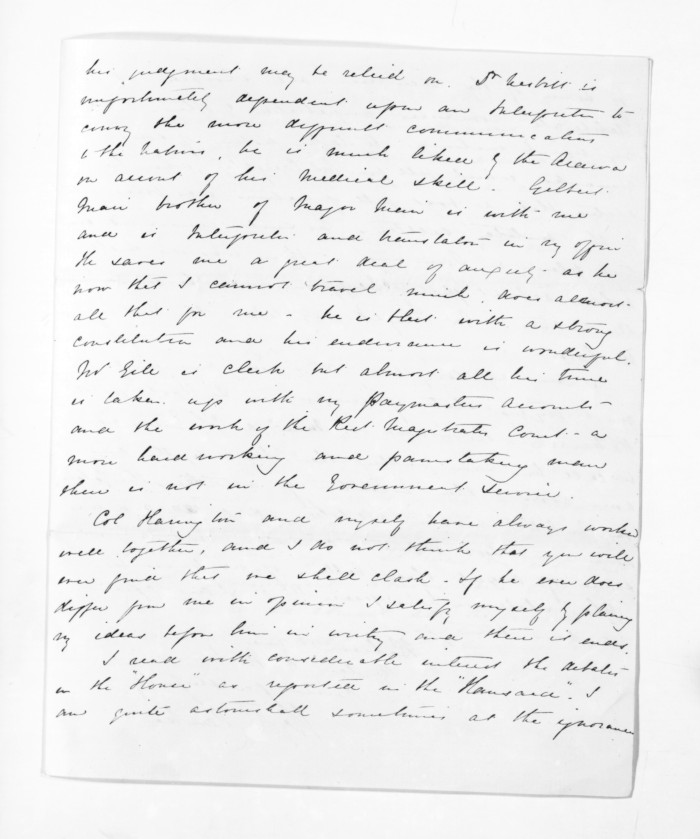 his judgment may be relied on. Dr Nesbitt is
unfortunately dependent upon an Interpreter to
convey the more difficult communications
to the Natives, he is much liked by the Arawa
on account of his medical skill. Gilbert
Mair brother of Major Mair is with me
and is Interpreter and translator in my office
He saves me a great deal of anxiety as he
now that I cannot travel much, does almost
all that for me - he is blest with a strong
constitution and his endurance is wonderful.
Mr Gill is clerk but almost all his time
is taken up with my Paymasters accounts
and the work of the Resdt Magistrates Court - a
more hardworking and painstaking man
there is not in the Government Service.
Col Harington and myself have always worked
well together, and I do not think that you will
ever find that we shall clash - If he ever does
differ from me in opinion I satisfy myself by placing
my ideas before him in writing and there it ends.
I read with considerable interest the debates
in the "House" as reported in the "Hansard". I
am quite astonished sometimes at the ignorance